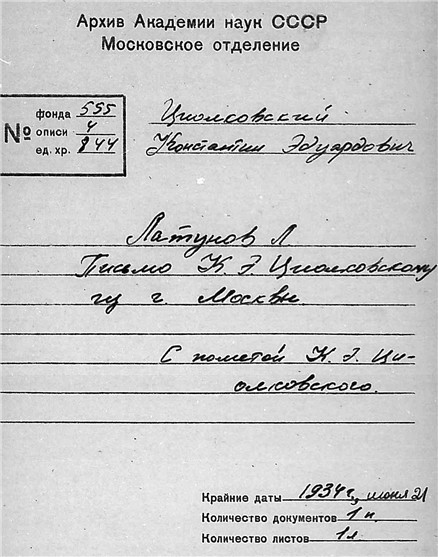 Архив Академии наук СССР
Московское отделение
№
фонда 555
описи 4
ед. хр. 344
Циолковский
Константин Эдуардович
Латунов Л
Письмо К. Э. Циолковскому
из г. Москвы.
С пометой К. Э. Ци-
олковского.
Крайние даты 1934 г., июня 21
Количество документов 1
Количество листов 1 л.